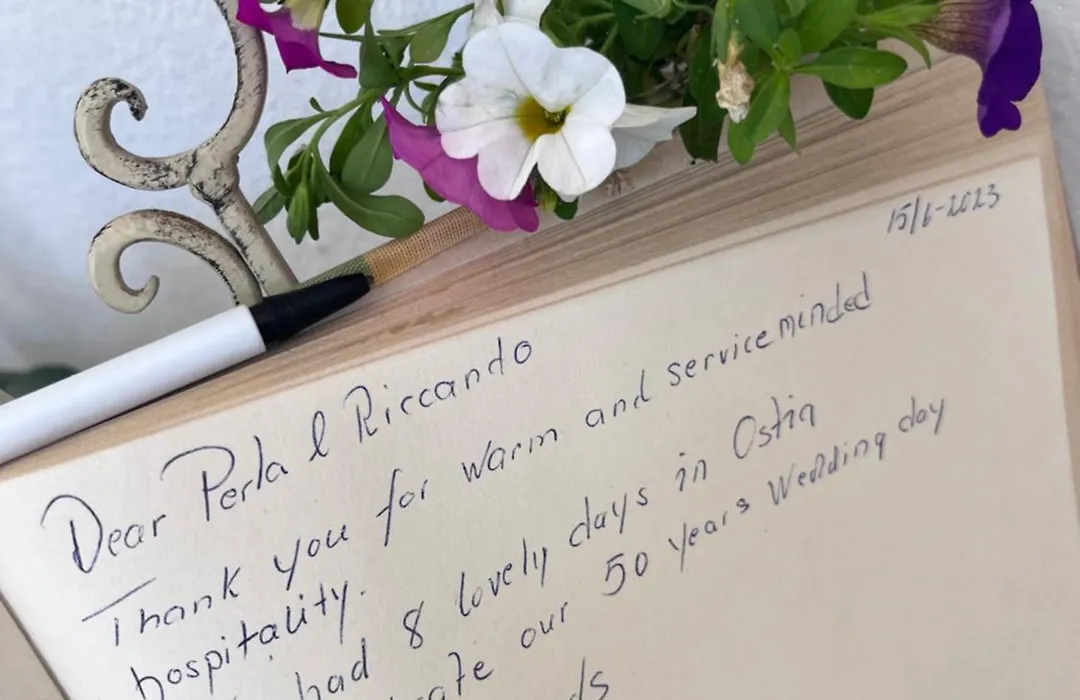 15/6-2023
Dear Perla & Riccando
Thank you for warm and serviceminded
hospitality.
had 8 lovely days in Ostia
our 50 years Wedding day